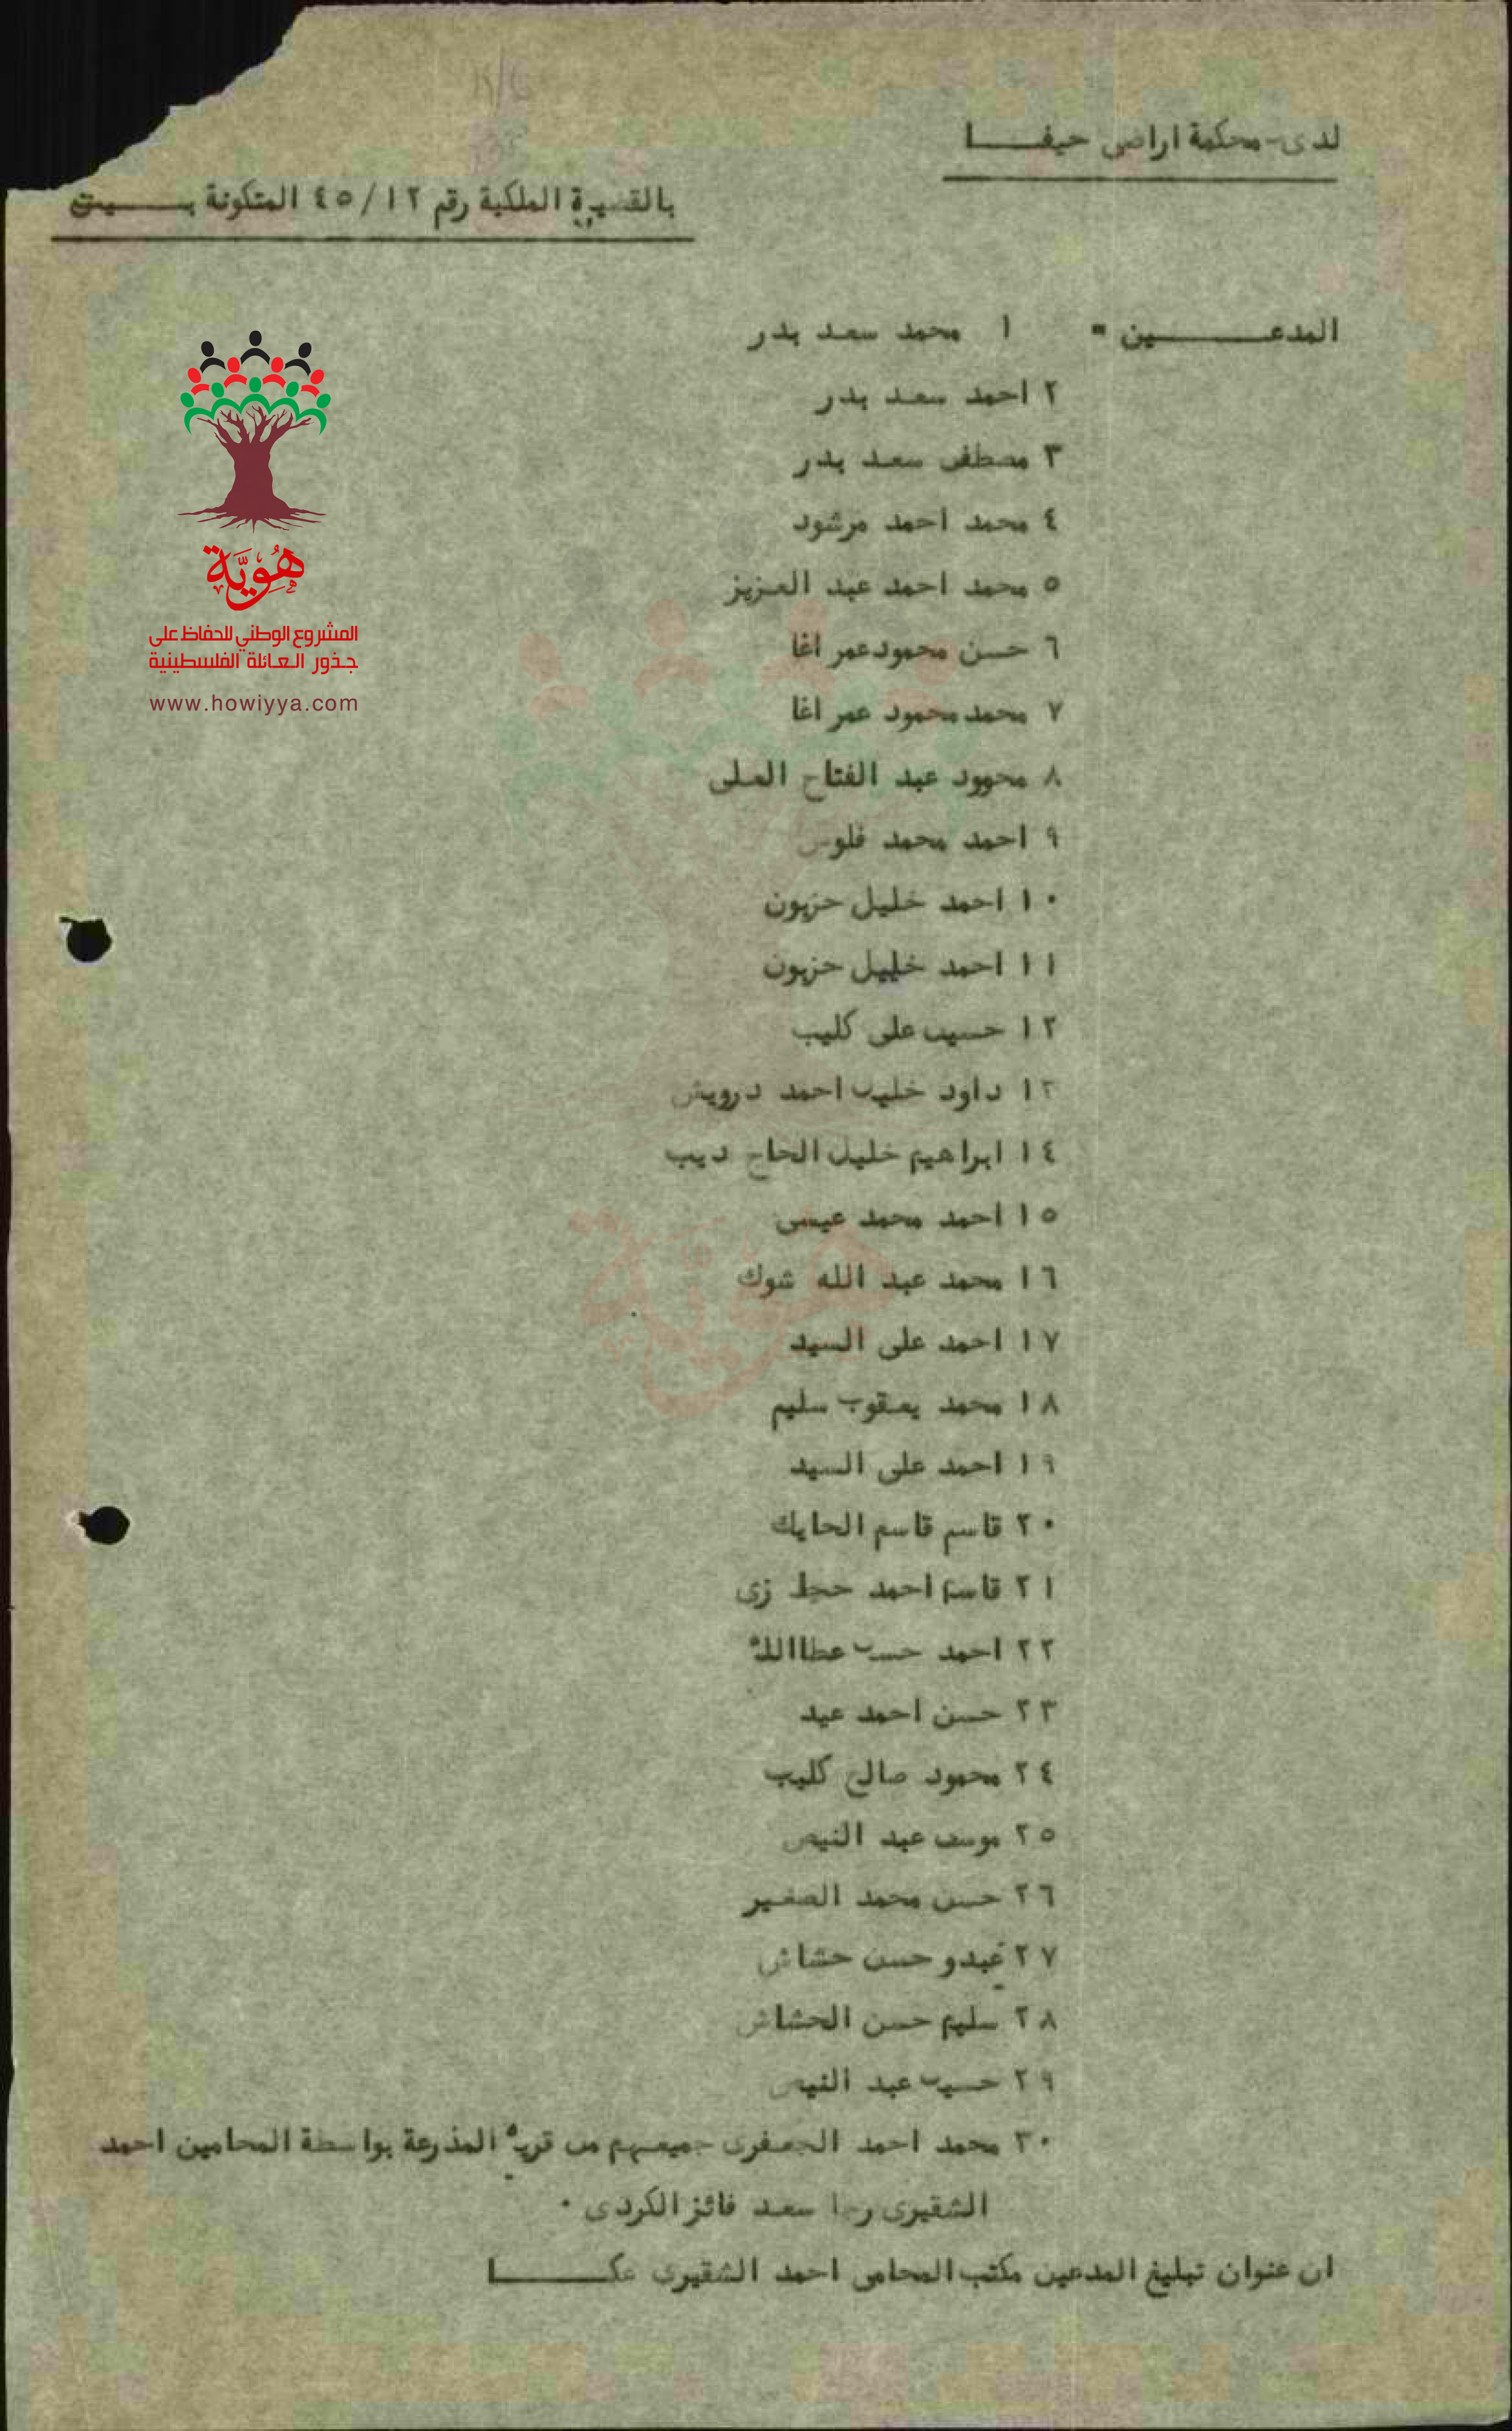 لدى محكمة اراضي حيفـــا
بالقضية الملكية رقم ٤٥/١٢ المتكونة بـــين
المدعـــــين = ١ محمد سعد بدر
٢ احمد سعد بدر
٣ مصطفى سعد بدر
٤ محمد احمد مرشود
٥ محمد احمد عبد العزيز
٦ حسن محمود عمر اغا
٧ محمد محمود عمر اغا
٨ محمود عبد الفتاح العلي
٩ احمد محمد فلو
١٠ احمد خليل حزبون
١١ احمد خليل حزبون
١٢ حسين علي كليب
١٣ داود خليل احمد درويش
١٤ ابراهيم خليل الحاج ديب
١٥ احمد محمد عيسى
١٦ محمد عبد الله شوك
١٧ احمد علي السيد
١٨ محمد يعقوب سليم
١٩ احمد علي السيد
٢٠ قاسم قاسم الحايك
٢١ قاسم احمد
٢٢ احمد حسن عطاالله
٢٣ حسن احمد عيد
٢٤ محمود صالح كليب
٢٥ عبد
٢٦ حسن محمد الصغير
٢٧ عبدو حسن حشاش
٢٨ سليم حسن الحشاش
٢٩ حسين عبد
٣٠ محمد احمد الجعفري جميعهم من قرية المذرعة بواسطة المحامين احمد
الشقيري رجا سعد فائز الكردي .
ان عنوان تبليغ المدعين مكتب المحامي احمد الشقيري عكـــا
هُوِيَّة
المشروع الوطني للحفاظ على
جذور العائلة الفلسطينية
www.howiyya.com
هوية